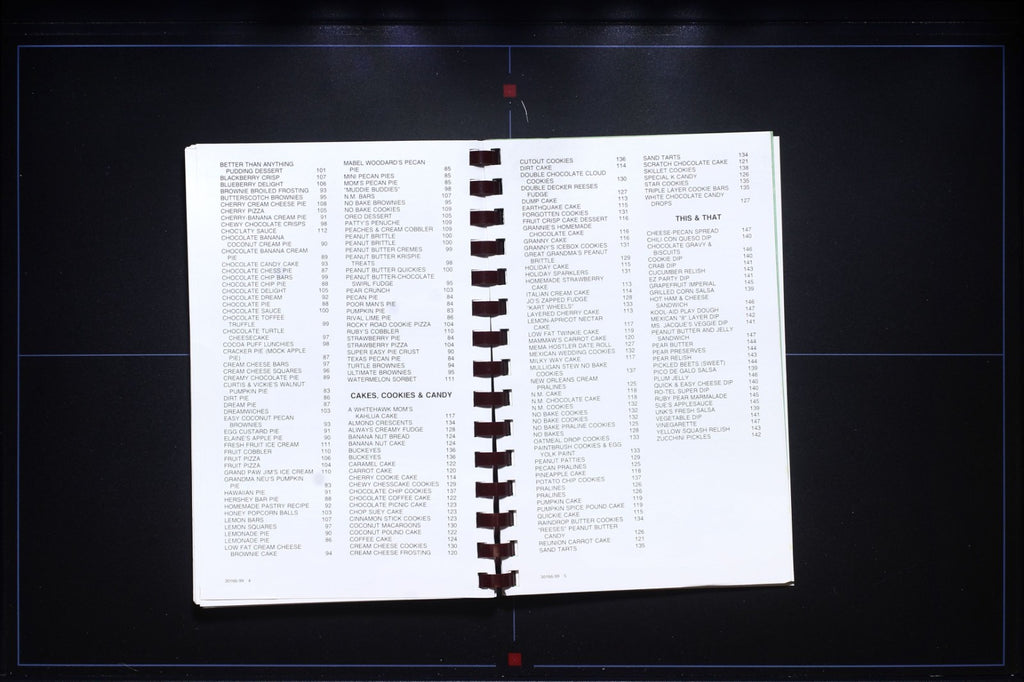 BETTER THAN ANYTHING
PUDDING DESSERT 101
BLACKBERRY CRISP 107
BLUEBERRY DELIGHT 106
BROWNIE BROILED FROSTING 93
BUTTERSCOTCH BROWNIES 95
CHERRY CREAM CHEESE PIE 108
CHERRY PIZZA 105
CHERRY-BANANA CREAM PIE 91
CHEWY CHOCOLATE CRISPS 98
CHOC'LATY SAUCE 112
CHOCOLATE BANANA
COCONUT CREAM PIE 90
CHOCOLATE BANANA CREAM
PIE 89
CHOCOLATE CANDY CAKE 93
CHOCOLATE CHESS PIE 87
CHOCOLATE CHIP BARS 99
CHOCOLATE CHIP PIE 88
CHOCOLATE DELIGHT 105
CHOCOLATE DREAM 92
CHOCOLATE PIE 88
CHOCOLATE SAUCE 100
CHOCOLATE TOFFEE
TRUFFLE 99
CHOCOLATE TURTLE
CHEESECAKE 97
COCOA PUFF LUNCHIES 98
CRACKER PIE (MOCK APPLE
PIE) 87
CREAM CHEESE BARS 97
CREAM CHEESE SQUARES 96
CREAMY CHOCOLATE PIE 89
CURTIS & VICKIE'S WALNUT
PUMPKIN PIE 83
DIRT PIE 86
DREAM PIE 87
DREAMWICHES 103
EASY COCONUT PECAN
BROWNIES 93
EGG CUSTARD PIE 91
ELAINE'S APPLE PIE 90
FRESH FRUIT ICE CREAM 111
FRUIT COBBLER 110
FRUIT PIZZA 106
FRUIT PIZZA 104
GRAND PAW JIM'S ICE CREAM 110
GRANDMA NEU'S PUMPKIN
PIE 83
HAWAIIAN PIE 91
HERSHEY BAR PIE 88
HOMEMADE PASTRY RECIPE 92
HONEY POPCORN BALLS 103
LEMON BARS 107
LEMON SQUARES 97
LEMONADE PIE 90
LEMONADE PIE 86
LOW FAT CREAM CHEESE
BROWNIE CAKE 94
MABEL WOODARD'S PECAN
PIE 85
MINI PECAN PIES 85
MOM'S PECAN PIE 85
"MUDDIE BUDDIES" 98
N.M. BARS 107
NO BAKE BROWNIES 95
NO BAKE COOKIES 109
OREO DESSERT 105
PATTY'S PENUCHE 109
PEACHES & CREAM COBBLER 109
PEANUT BRITTLE 100
PEANUT BRITTLE 100
PEANUT BUTTER CREMES 99
PEANUT BUTTER KRISPIE
TREATS 98
PEANUT BUTTER QUICKIES 100
PEANUT BUTTER-CHOCOLATE
SWIRL FUDGE 95
PEAR CRUNCH 103
PECAN PIE 84
POOR MAN'S PIE 84
PUMPKIN PIE 83
RIVAL LIME PIE 86
ROCKY ROAD COOKIE PIZZA 104
RUBY'S COBBLER 110
STRAWBERRY PIE 84
STRAWBERRY PIZZA 104
SUPER EASY PIE CRUST 90
TEXAS PECAN PIE 84
TURTLE BROWNIES 94
ULTIMATE BROWNIES 95
WATERMELON SORBET 111
CAKES, COOKIES & CANDY
A WHITEHAWK MOM'S
KAHLUA CAKE 117
ALMOND CRESCENTS 134
ALWAYS CREAMY FUDGE 128
BANANA NUT BREAD 124
BANANA NUT CAKE 124
BUCKEYES 136
BUCKEYES 136
CARAMEL CAKE 122
CARROT CAKE 120
CHERRY COOKIE CAKE 114
CHEWY CHESSCAKE COOKIES 129
CHOCOLATE CHIP COOKIES 137
CHOCOLATE COFFEE CAKE 122
CHOCOLATE PICNIC CAKE 123
CHOP SUEY CAKE 123
CINNAMON STICK COOKIES 123
COCONUT MACAROONS 130
COCONUT POUND CAKE 122
COFFEE CAKE 124
CREAM CHEESE COOKIES 130
CREAM CHEESE FROSTING 120
30166-99 4
CUTOUT COOKIES 136
DIRT CAKE 114
DOUBLE CHOCOLATE CLOUD
COOKIES 130
DOUBLE DECKER REESES
FUDGE 127
DUMP CAKE 113
EARTHQUAKE CAKE 115
FORGOTTEN COOKIES 131
FRUIT CRISP CAKE DESSERT 116
GRANNIE'S HOMEMADE
CHOCOLATE CAKE 116
GRANNY CAKE 116
GRANNY'S ICEBOX COOKIES 131
GREAT GRANDMA'S PEANUT
BRITTLE 129
HOLIDAY CAKE 115
HOLIDAY SPARKLERS 131
HOMEMADE STRAWBERRY
CAKE 113
ITALIAN CREAM CAKE 114
JO'S ZAPPED FUDGE 128
"KART WHEELS" 133
LAYERED CHERRY CAKE 113
LEMON-APRICOT NECTAR
CAKE 117
LOW FAT TWINKIE CAKE 119
MAMMAW'S CARROT CAKE 120
MEMA HOSTLER DATE ROLL 127
MEXICAN WEDDING COOKIES 132
MILKY WAY CAKE 117
MULLIGAN STEW NO BAKE
COOKIES 137
NEW ORLEANS CREAM
PRALINES 125
N.M. CAKE 118
N.M. CHOCOLATE CAKE 118
N.M. COOKIES 132
NO BAKE COOKIES 132
NO BAKE COOKIES 132
NO BAKE PRALINE COOKIES 125
NO BAKES 128
OATMEAL DROP COOKIES 133
PAINTBRUSH COOKIES & EGG
YOLK PAINT 133
PEANUT PATTIES 129
PECAN PRALINES 125
PINEAPPLE CAKE 118
POTATO CHIP COOKIES 137
PRALINES 126
PRALINES 126
PUMPKIN CAKE 119
PUMPKIN SPICE POUND CAKE 119
QUICKIE CAKE 115
RAINDROP BUTTER COOKIES 134
"REESES" PEANUT BUTTER
CANDY 126
REUNION CARROT CAKE 121
SAND TARTS 135
SAND TARTS 134
SCRATCH CHOCOLATE CAKE 121
SKILLET COOKIES 138
SPECIAL K CANDY 126
STAR COOKIES 135
TRIPLE LAYER COOKIE BARS 135
WHITE CHOCOLATE CANDY
DROPS 127
THIS & THAT
CHEESE-PECAN SPREAD 147
CHILI CON QUESO DIP 140
CHOCOLATE GRAVY &
BISCUITS 146
COOKIE DIP 140
CRAB DIP 141
CUCUMBER RELISH 143
EZ PARTY DIP 141
GRAPEFRUIT IMPERIAL 145
GRILLED CORN SALSA 139
HOT HAM & CHEESE
SANDWICH 146
KOOL-AID PLAY DOUGH 147
MEXICAN "8" LAYER DIP 142
MS. JACQUE'S VEGGIE DIP 141
PEANUT BUTTER AND JELLY
SANDWICH 147
PEAR BUTTER 144
PEAR PRESERVES 144
PEAR RELISH 143
PICKLED BEETS (SWEET) 144
PICO DE GALO SALSA 139
PLUM JELLY 146
QUICK & EASY CHEESE DIP 140
RO-TEL SUPER DIP 140
RUBY PEAR MARMALADE 145
SUE'S APPLESAUCE 145
UNK'S FRESH SALSA 139
VEGETABLE DIP 141
VINEGARETTE 147
YELLOW SQUASH RELISH 143
ZUCCHINI PICKLES 142
30166-99 5